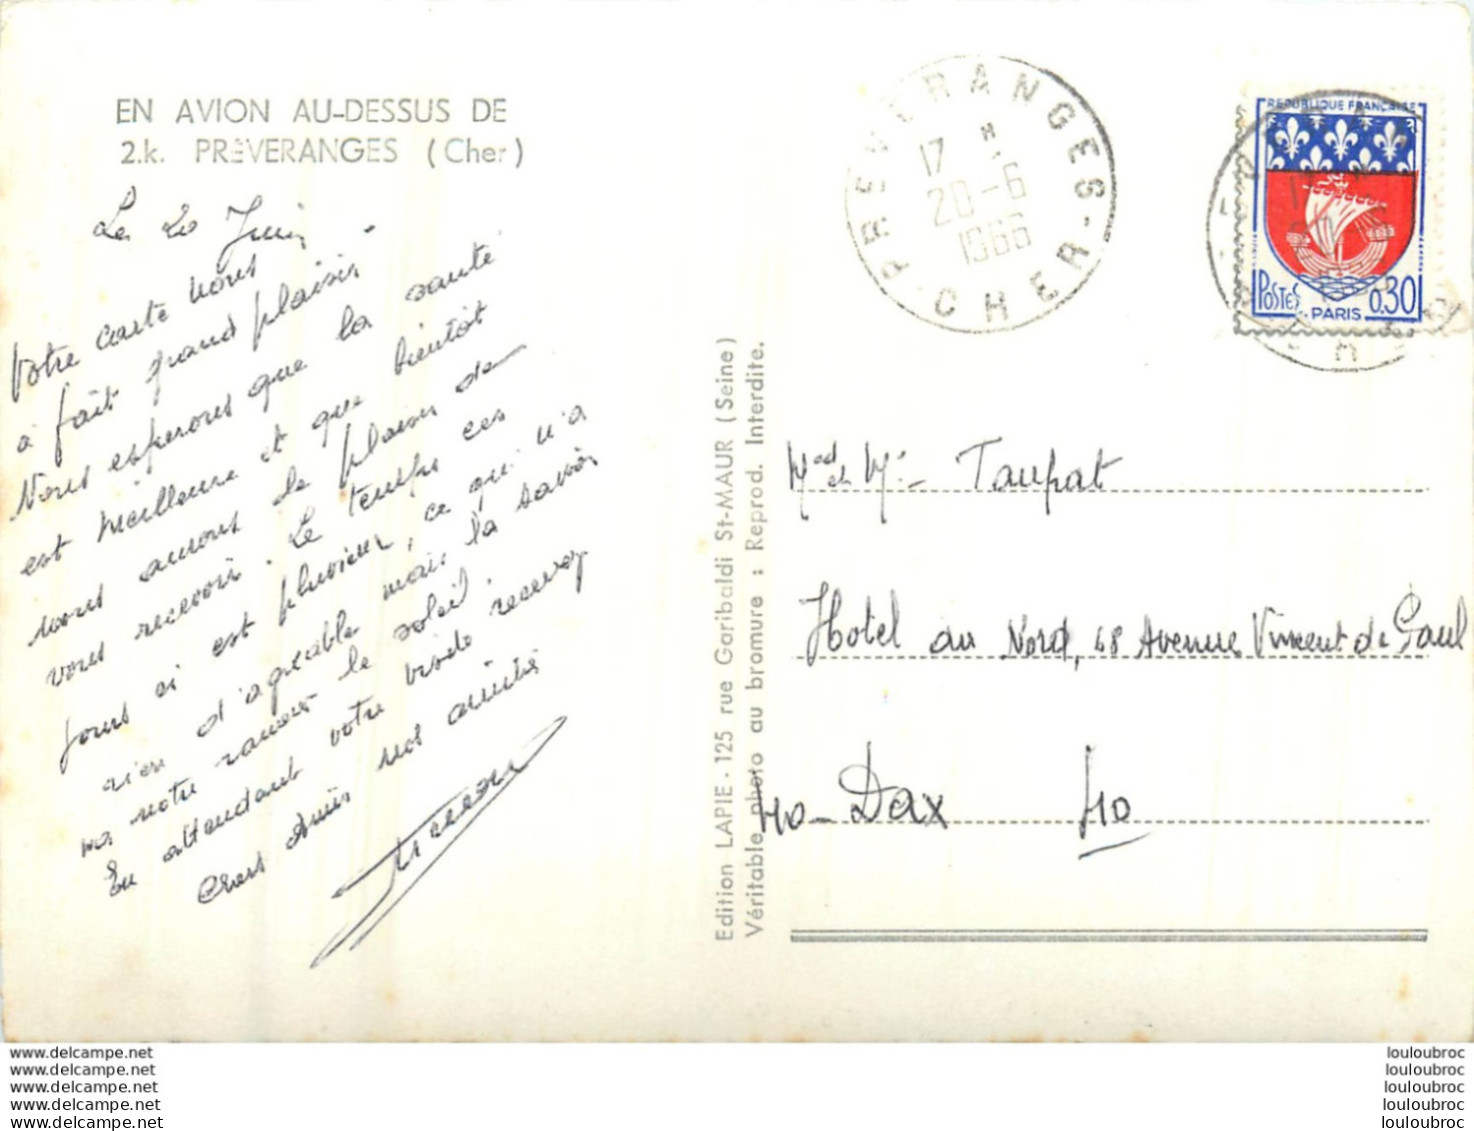 EN AVION AU-DESSUS DE
2.k. PRÉVERANGES (Cher)
Le 20 Juin
Votre carte nous
a fait grand plaisir.
Nous esperons que la santé
est meilleure et que bientôt
nous aurons le plaisir de
vous recevoir. Le temps ces
jours ci est pluvieux, ce qui n'a
rien d'agréable mais la saison
va notre ramener le soleil.
En attendant votre visite recevez
chers Amis nos amitiés
Edition LAPIE - 125 rue Garibaldi St-MAUR (Seine)
Véritable photo au bromure : Reprod. Interdite.
PREVERANGES - CHER
17 H
20-6
1966
REPUBLIQUE FRANÇAISE
POSTES
0,30
PARIS
Med et Mr Taupat
Hotel du Nord, 68 Avenue Vincent de Paul
40 - Dax 40
www.delcampe.net
www.delcampe.net
www.delcampe.net
www.delcampe.net
www.delcampe.net
louloubroc
louloubroc
louloubroc
louloubroc
louloubroc